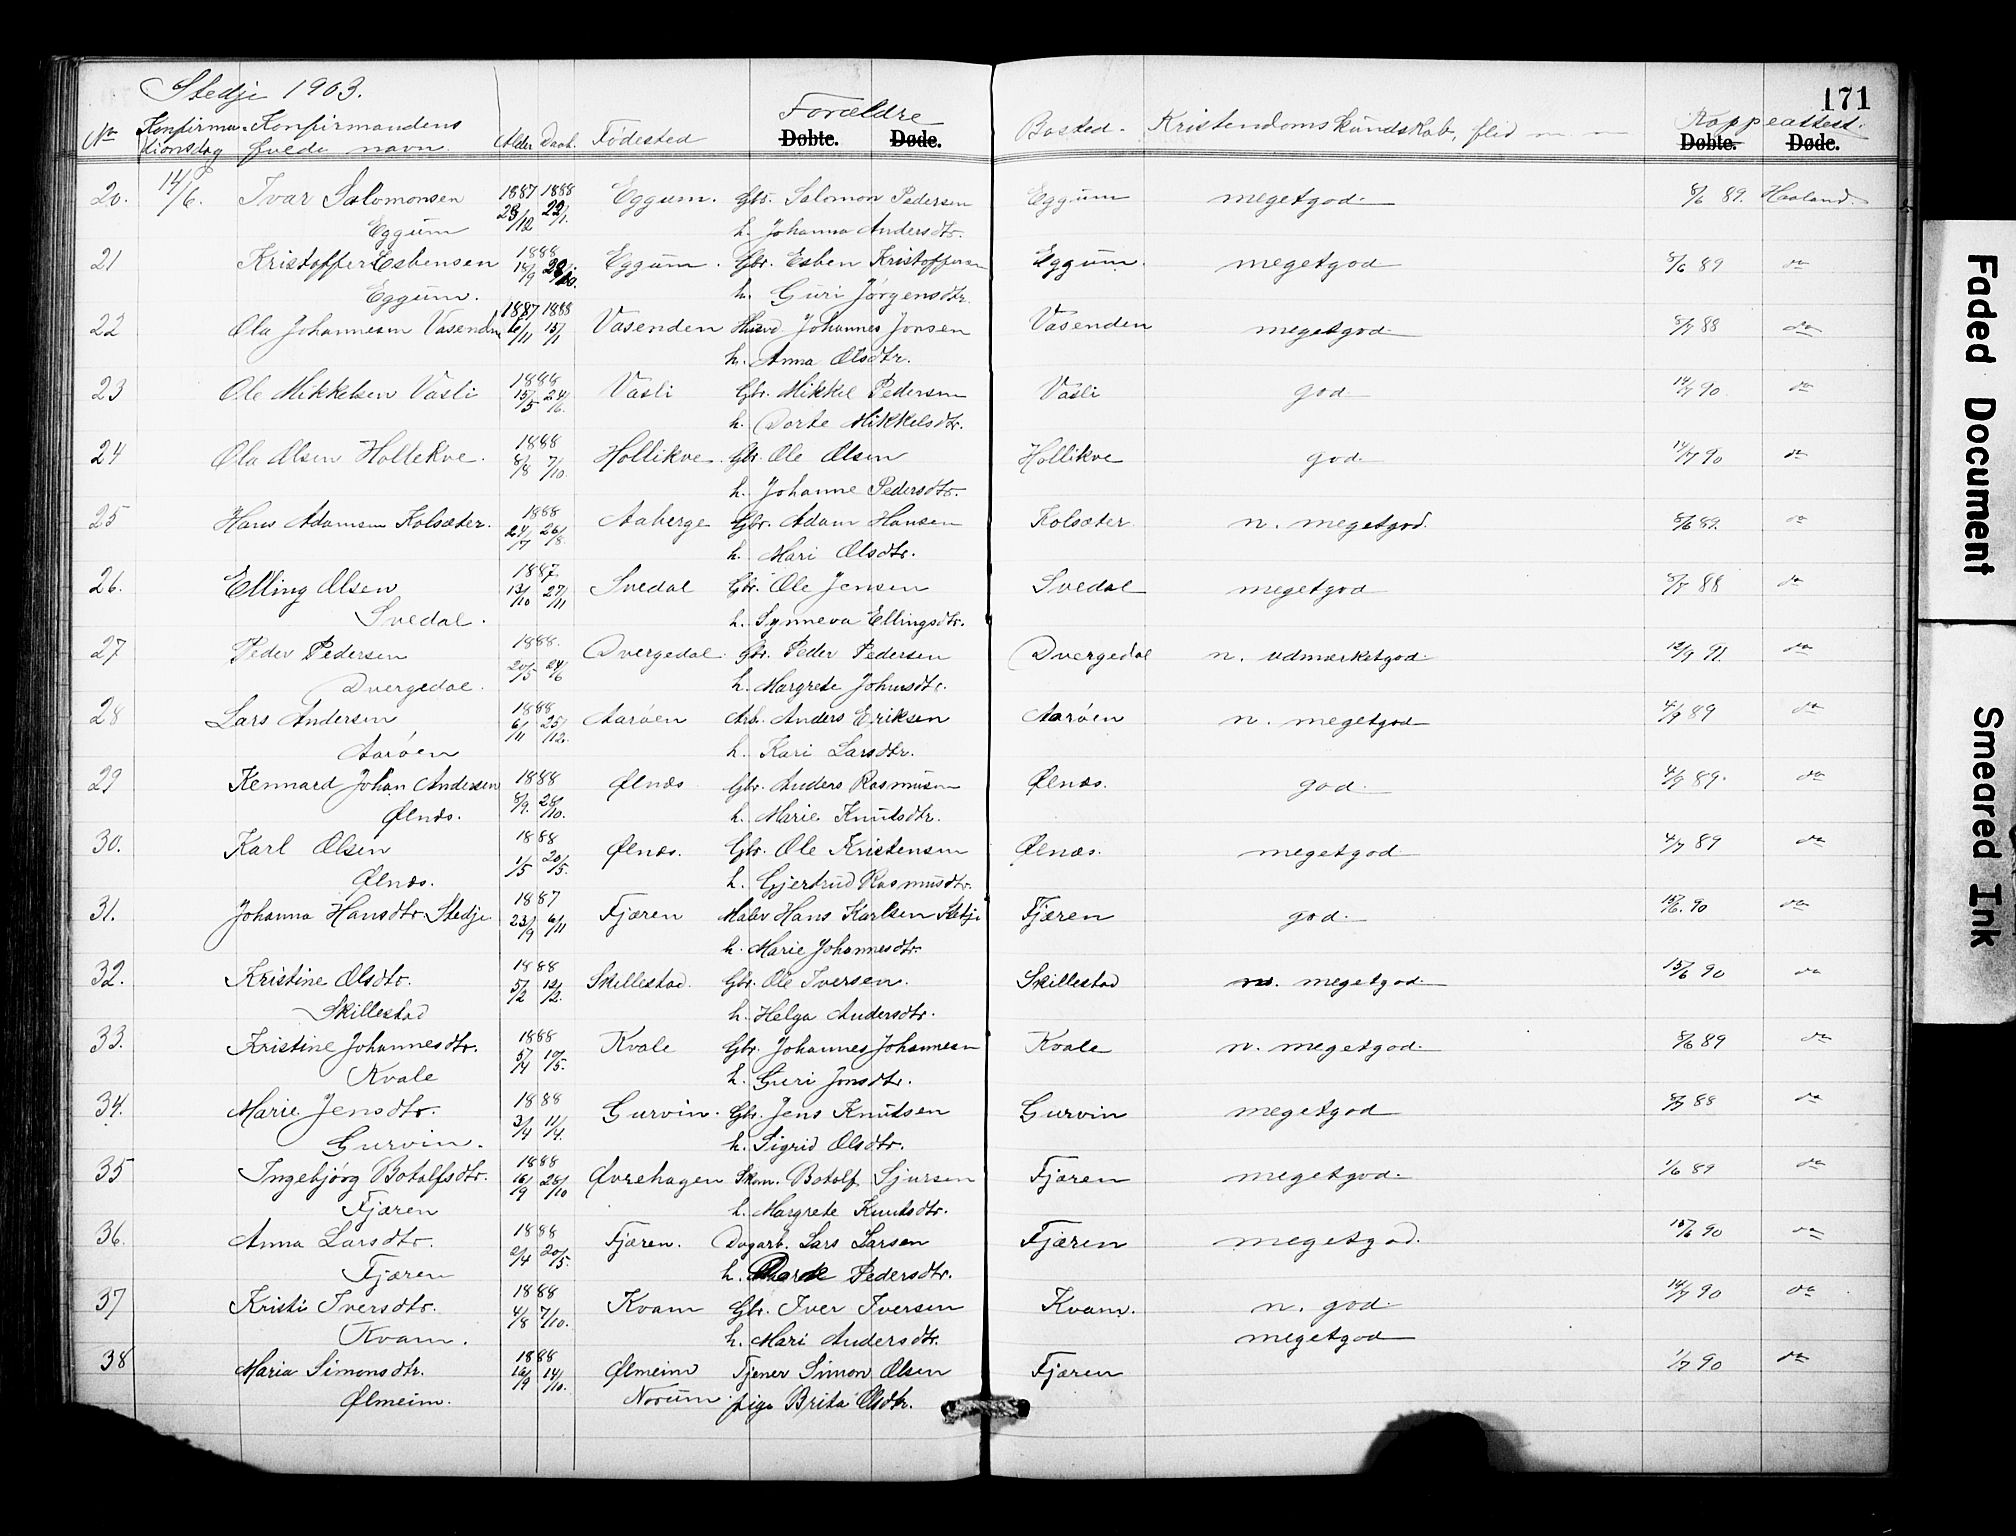 Stedje 1903.
171
No Konfirma- Konfirmandens Alder Daab. Fødested Forældre Bosted. Kristendomskundskab, flid m. m Koppeattest.
tionsdag fulde navn Døbte. Døde. Døbte. Døde.
20. 14/6. Ivar Salomonsen 1887 1888 Eggum. Gbr. Salomon Pedersen Eggum megetgod. 8/6 89. Haaland.
Eggum 28/12 22/1. h. Johanna Andersdtr.
21 Kristoffer Esbensen 1888 Eggum. Gbr. Esben Kristoffersen Eggum. megetgod 8/6 89 do
Eggum. h. Guri Jørgensdtr.
22 Ola Johannesen Vasenden 1887 1888 Vasenden Husmd Johannes Jonsen Vasenden megetgod 8/7 88 do
6/11 15/1 h. Anna Olsdtr.
23 Ole Mikkelsen Vasli 1888 Vasli Gbr. Mikkel Pedersen Vasli god. 14/7 90 do
15/5 24/6. h. Dorte Mikkelsdtr.
24 Ola Olsen Hollekve. 1888 Hollikve. Gbr. Ole Olsen Hollikve god. 14/7 90 do
8/8 7/10. h. Johanne Pedersdtr.
25 Hans Adamsen Kolsæter. 1888 Aaberge Gbr. Adam Hansen Kolsæter n. megetgod. 8/6 89. do
24/7 26/8. h. Mari Olsdtr.
26. Elling Olsen 1887 Svedal Gbr. Ole Jensen Svedal megetgod 8/7 88 do
Svedal. 13/10 27/11 h. Synneva Ellingsdtr.
27 Peder Pedersen 1888. Dvergedal. Gbr. Peder Pedersen Dvergedal n. udmærketgod. 12/9 91. do
Dvergedal. 20/5 24/6 h. Margrete Johnsdtr.
28 Lars Andersen 1888 Aarøen Arb. Anders Eriksen Aarøen n. megetgod 4/9 89 do
Aarøen 6/11 25/12. h. Kari Larsdtr.
29 Kennard Johan Andersen 1888 Ølnæs Gbr. Anders Rasmusen Ølnæs. god. 4/9 89. do
Ølnæs. 8/9. 28/10. h. Marie Knutsdtr.
30. Karl Olsen 1888 Ølnæs. Gbr. Ole Kristensen Ølnæs. megetgod 4/7 89 do
Ølnæs. 1/5 20/5. h. Gjertrud Rasmusdtr.
31. Johanna Hansdtr Stedje 1887 Fjæren Maler Hans Karlsen Stedje Fjæren god. 15/6. 90 do
23/9 6/11 h. Marie Johannesdtr.
32. Kristine Olsdtr. 1888 Skillestad. Gbr. Ole Iversen. Skillestad n. megetgod. 15/6 90 do
Skillestad 5/2 12/2. h. Helga Andersdtr.
33. Kristine Johannesdtr. 1888 Kvale Gbr. Johannes Johannesen Kvale n. megetgod. 8/6 89 do
Kvale 5/4 10/5. h. Guri Jonsdtr.
34. Marie Jensdtr. 1888 Gurvin. Gbr. Jens Knutsen Gurvin megetgod 8/7 88 do
Gurvin. 3/4 11/4. h. Sigrid Olsdtr.
35 Ingebjørg Botolfsdtr. 1888 Øvrehagen Skom. Botolf Sjursen Fjæren megetgod. 1/6 89 do
Fjæren 16/9 28/10 h. Margrete Knutsdtr.
36. Anna Larsdtr. 1888 Fjæren. Dagarb. Lars Larsen Fjæren megetgod. 15/6 90 do
Fjæren 2/4 20/5. h. Pedersdtr.
37 Kristi Iversdtr. 1888 Kvam Gbr. Iver Iversen Kvam. n. god. 14/7 90 do
Kvam. 4/8 7/10. h. Mari Andersdtr. megetgod
38 Maria Simonsdtr. 1888 Ølmeim Tjener Simon Olsen Fjæren 1/7 90 do
Ølmeim. 16/9 14/10. Norum. pige Brita Olsdtr.
Faded Document
Smeared Ink